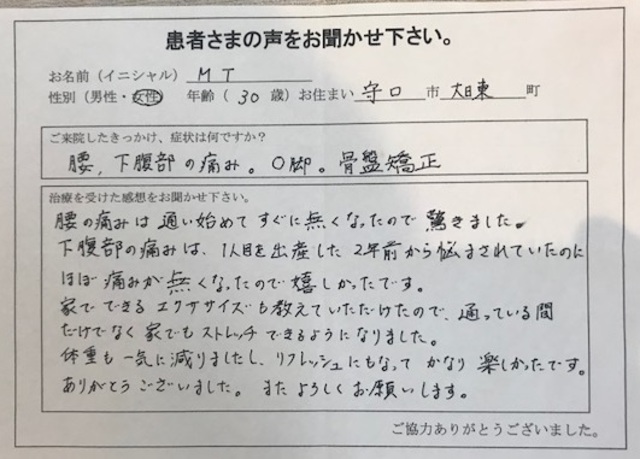 患者さまの声をお聞かせ下さい。
お名前（イニシャル） MT
性別（男性・女性） 年齢（ 30 歳）お住まい 守口 市 大日東 町
ご来院したきっかけ、症状は何ですか？
腰、下腹部の痛み。O脚。骨盤矯正
治療を受けた感想をお聞かせ下さい。
腰の痛みは通い始めてすぐに無くなったので驚きました。
下腹部の痛みは、1人目を出産した2年前から悩まされていたのに
ほぼ痛みが無くなったので嬉しかったです。
家でできるエクササイズも教えていただけたので、通っている間
だけでなく家でもストレッチできるようになりました。
体重も一気に減りましたし、リフレッシュにもなってかなり楽しかったです。
ありがとうございました。またよろしくお願いします。
ご協力ありがとうございました。